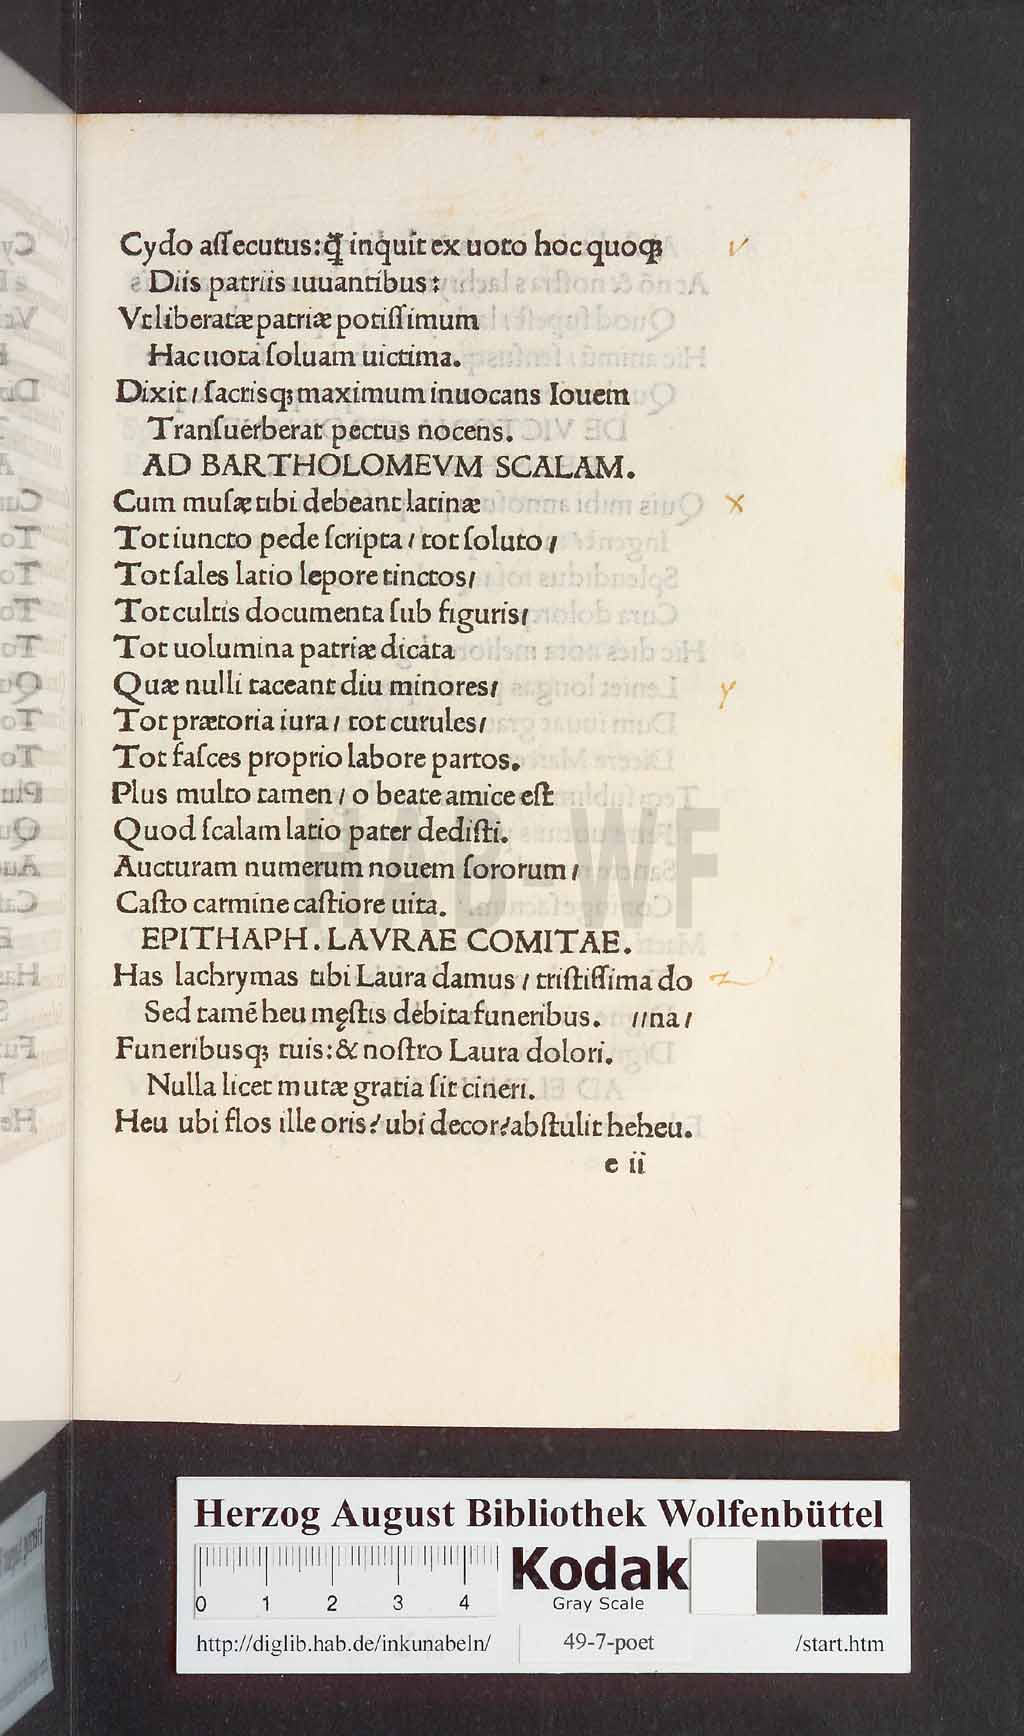 Cydo aſſecutus: ꝙ̃ inquit ex uoto hoc quoqꝫ
Diis patriis iuuantibus:
Vt liberatæ patriæ potiſſimum
Hac uota ſoluam uictima.
Dixit / ſacrisqꝫ maximum inuocans Iouem
Tranſuerberat pectus nocens.
AD BARTHOLOMEVM SCALAM.
Cum muſæ tibi debeant latinæ
Tot iuncto pede ſcripta / tot ſoluto /
Tot ſales latio lepore tinctos /
Tot cultis documenta ſub figuris /
Tot uolumina patriæ dicata
Quæ nulli taceant diu minores /
Tot prætoria iura / tot curules /
Tot faſces proprio labore partos.
Plus multo tamen / o beate amice eſt
Quod ſcalam latio pater dediſti.
Aucturam numerum nouem ſororum /
Caſto carmine caſtiore uita.
EPITHAPH. LAVRAE COMITAE.
Has lachrymas tibi Laura damus / triſtiſſima do
Sed tamē heu męſtis debita funeribus. //na /
Funeribusqꝫ tuis: & noſtro Laura dolori.
Nulla licet mutæ gratia ſit cineri.
Heu ubi flos ille oris? ubi decor? abſtulit heheu.
e ii
v
x
y
z
HAB-WF
Herzog August Bibliothek Wolfenbüttel
0 1 2 3 4
Kodak
Gray Scale
http://diglib.hab.de/inkunabeln/ 49-7-poet /start.htm